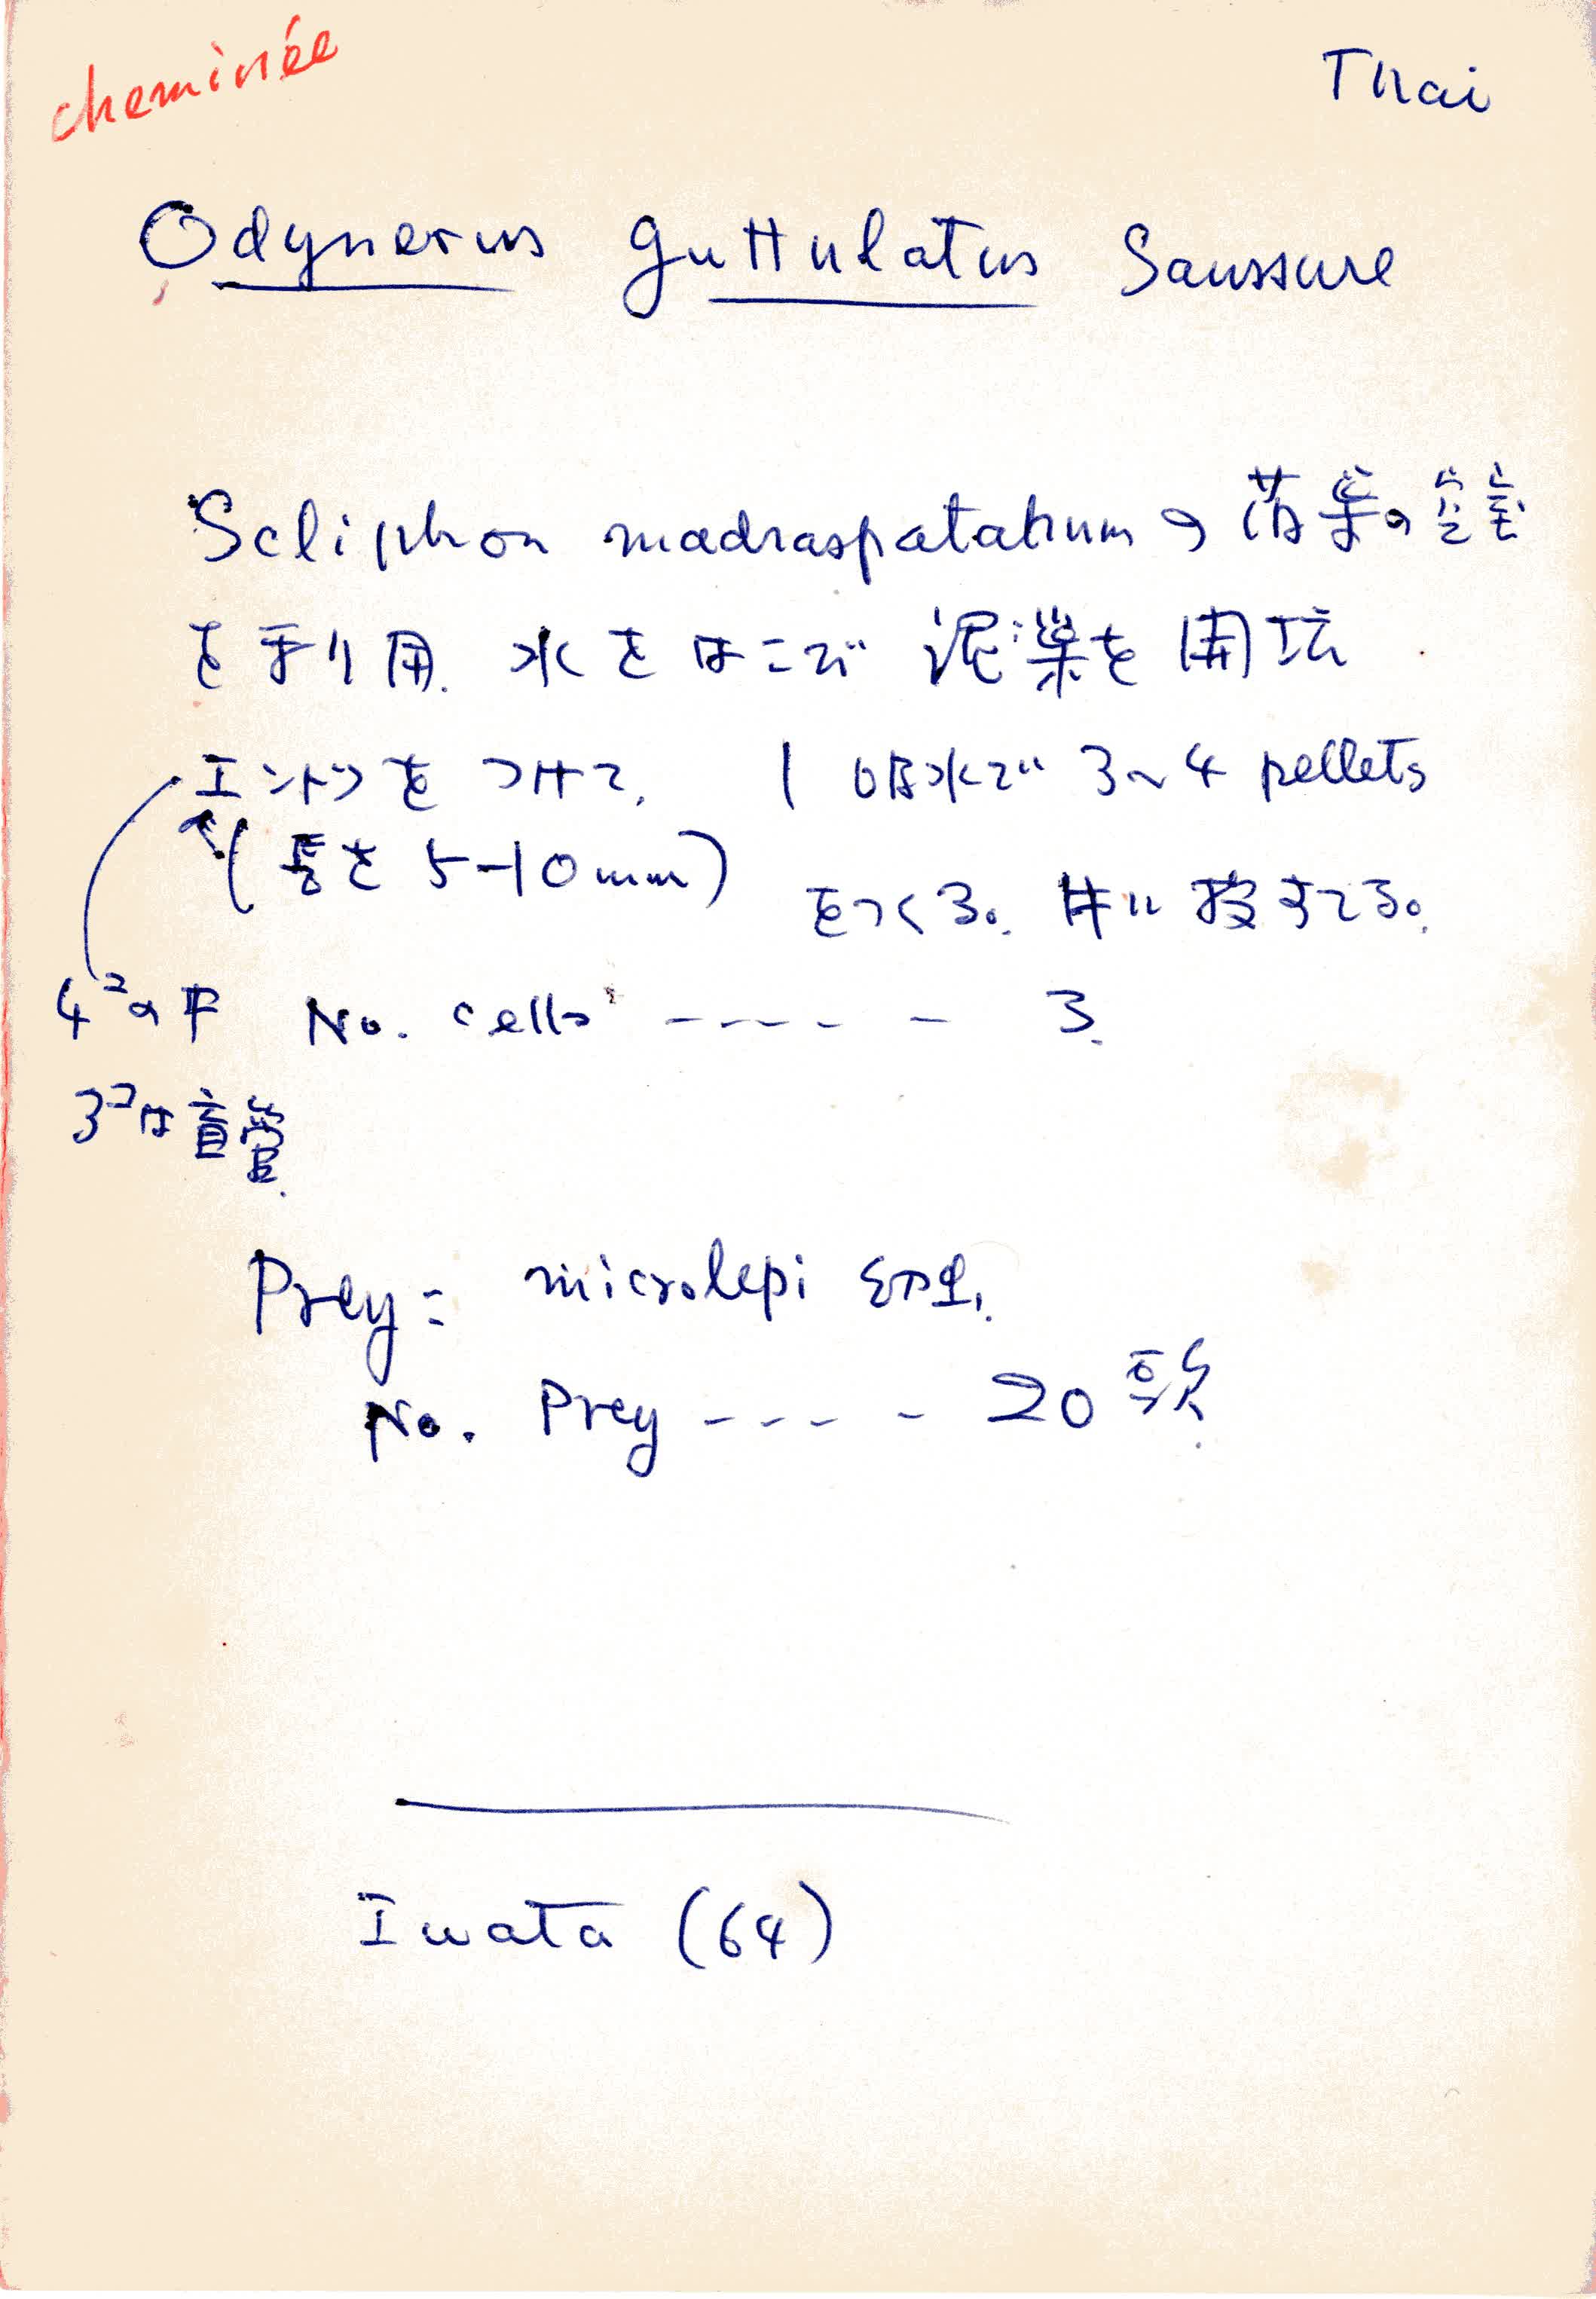 cheminée
Thai
Odynerus guttulatus Saussure
Scliphon madraspatatum の落巣の空室
を利用. 水をはこび 泥巣を開坑
エントツをつけて. 1吸水で 3~4 pellets
(長さ 5-10mm) をつくる。 投すてる。
4コの中 No. cells ----- 3.
3コは盲管.
Prey = microlepi 幼虫.
No. Prey ---- 20頭.
Iwata (64)